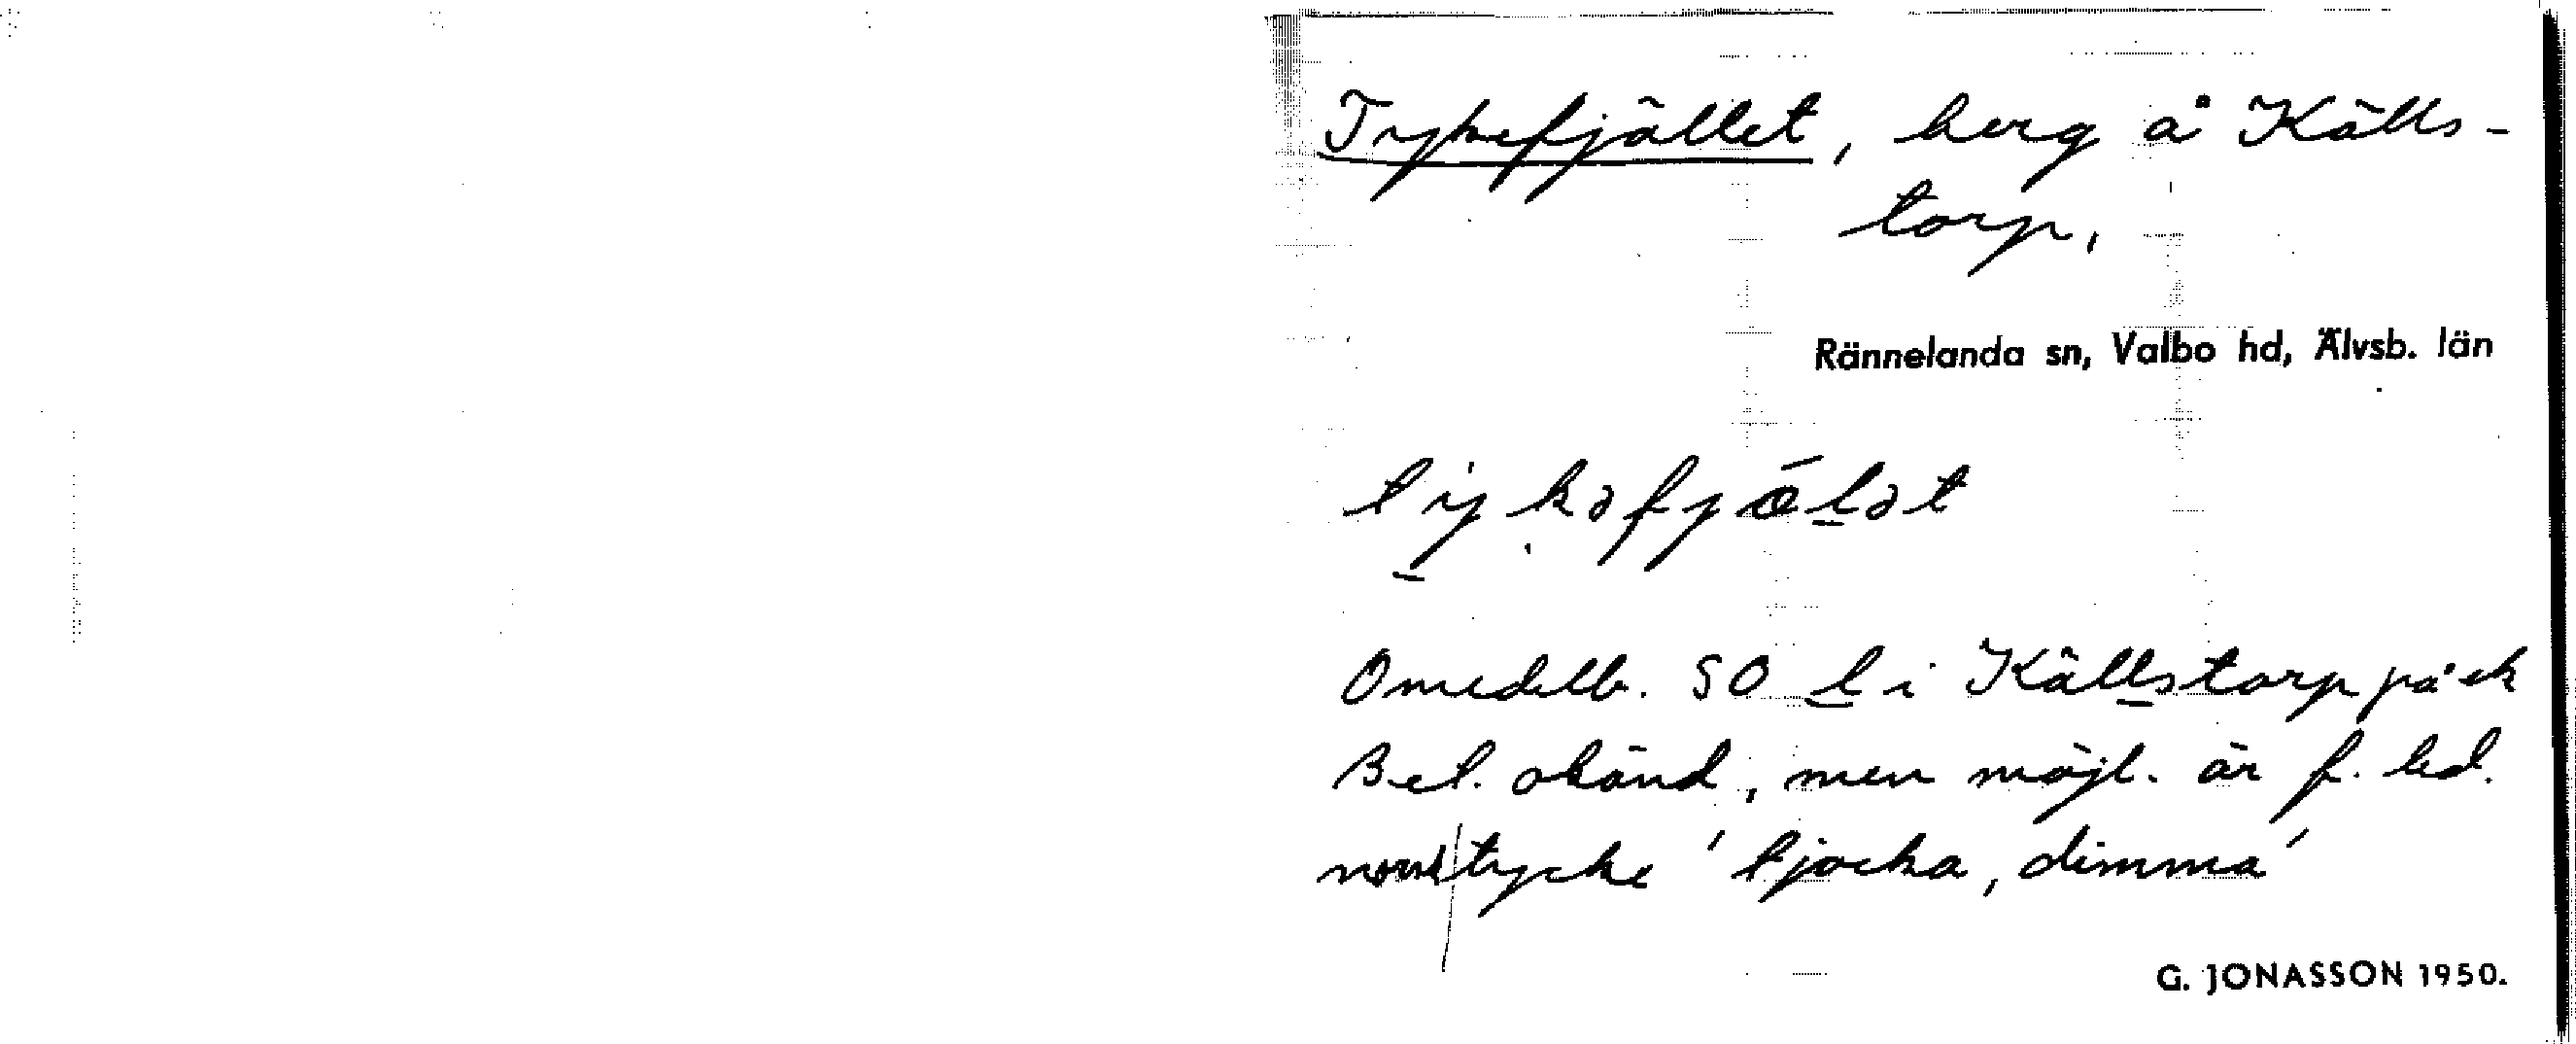 Tykefjället, berg å Källs-
torp,
Rännelanda sn, Valbo hd, Älvsb. län
tykəfjæ̂lət
Omedelb. SO l i Källstorp på ek
Bet. okänd, men möjl. är f. led.
norskt tycke 'tjocka, dimma'
G. JONASSON 1950.